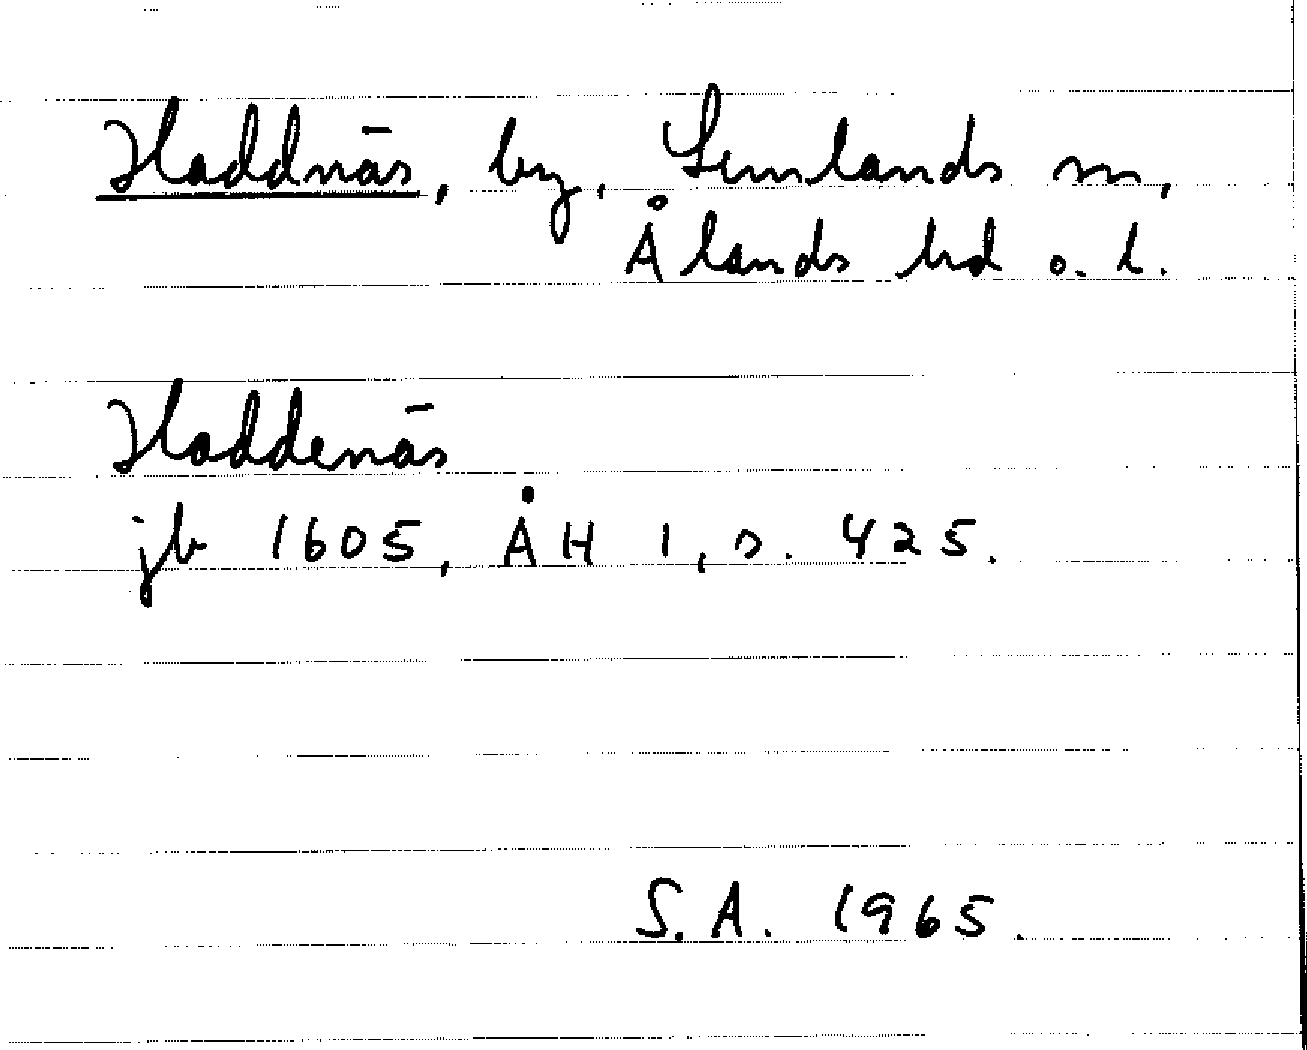 Haddnäs, by, Lemlands sn,
Ålands hd o. l.
Haddenäs
jb 1605, ÅH 1, s. 425.
S.A. 1965.